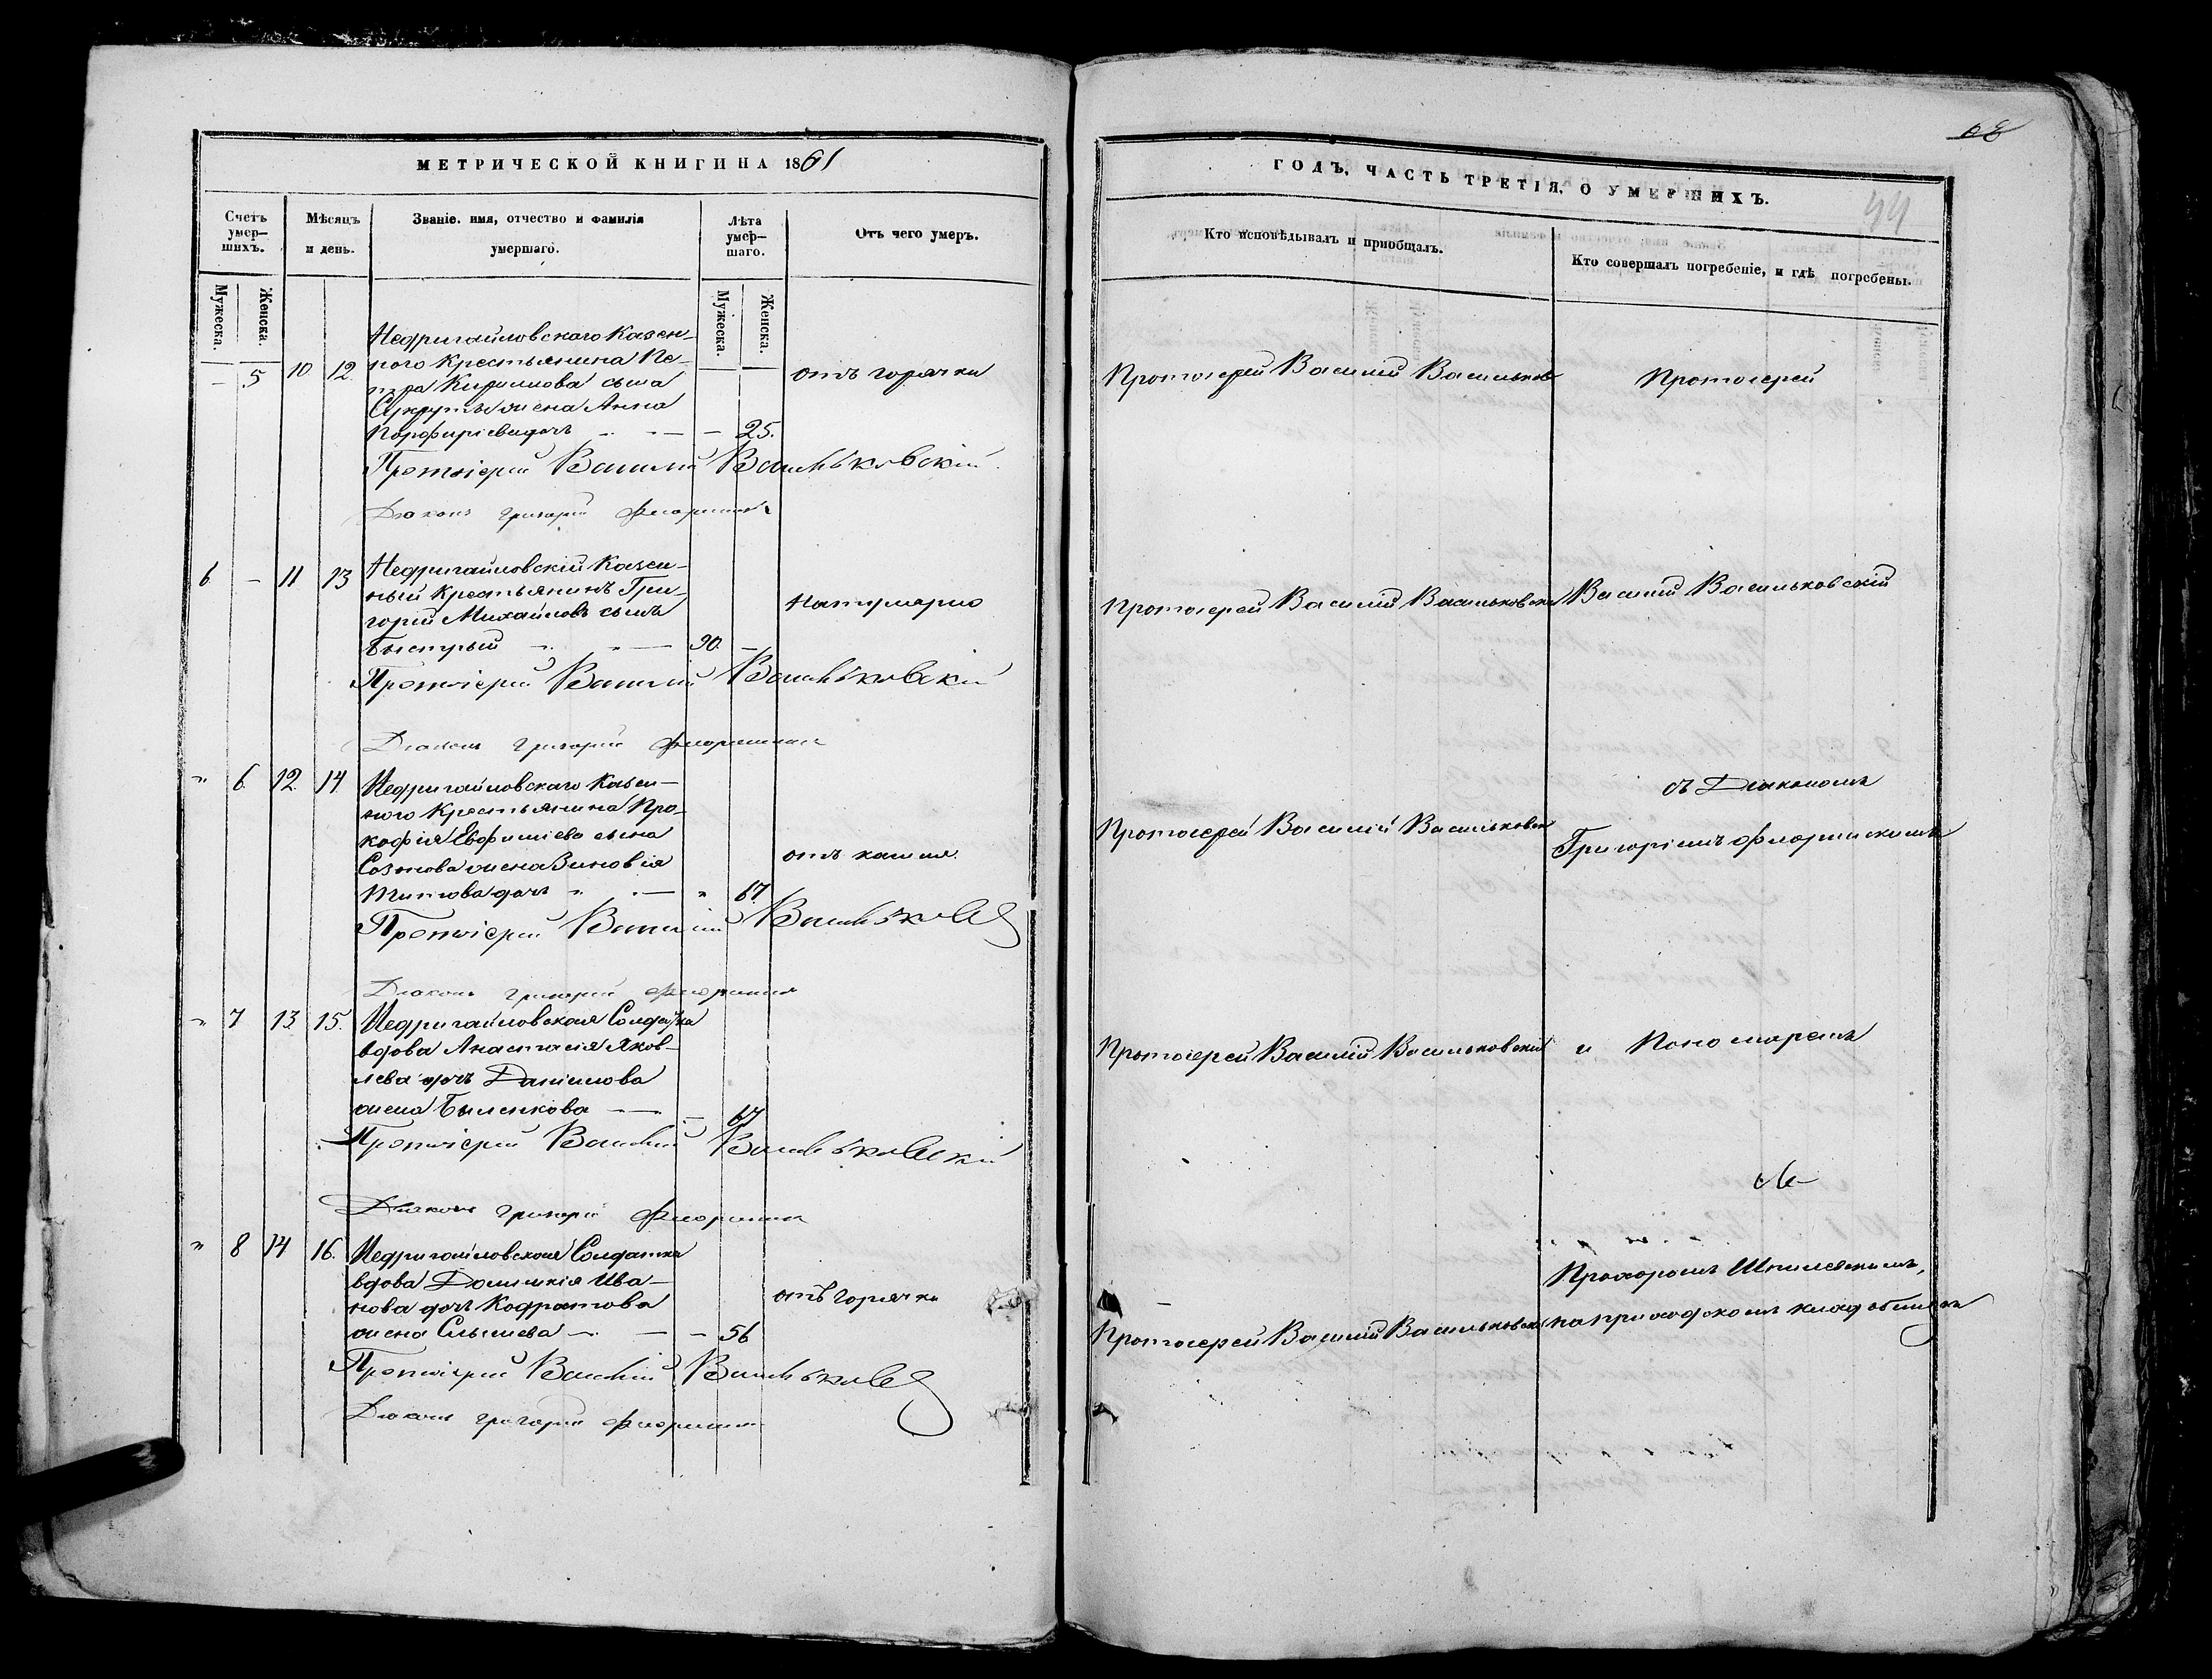 68
МЕТРИЧЕСКОЙ КНИГИ НА 1861
ГОДЪ, ЧАСТЬ ТРЕТІЯ, О УМЕРШИХЪ.
44
Счетъ умер-шихъ.
Мѣсяцъ и день.
Званіе. имя, отчество и фамилія умершаго.
Лѣта умер-шаго.
Отъ чего умеръ.
Кто исповѣдывалъ и пріобщалъ.
Кто совершалъ погребеніе, и гдѣ погребены.
Мужеска.
Женска.
Мужеска.
Женска.
Недригайловскаго Казен-
– 5 10 12 наго Крестьянина Пе-
тра Кирилова сына
жена Анна
Порфиріева дочь – 25.
отъ горячки
Протоіерей Василій Васильков
Протоіерей
Протоіерей Василій Васильковскій
Діаконъ Григорій
6 – 11 13 Недригайловскій Казен-
ный Крестьянинъ Гри-
горій Михайловъ сынъ
Быстрый 90. –
Натурально
Протоіерей Василій Васильковскій
Василій Васильковскій
Протоіерей Василій Васильковскій
Діаконъ Григорій
" 6 12 14. Недригайловскаго Казен-
наго Крестьянина Про-
кофія Евфиміева сына
жена Зиновія
Титова дочь " 67
отъ кашля.
Протоіерей Василій Васильковск
съ Діакономъ
Григоріемъ Флоринскимъ
Протоіерей Василій
Діаконъ Григорій
" 7 13 15. Недригайловская Солдатка
вдова Анастасія Яков-
лева дочь Даніилова
жена Быленкова – 67
Протоіерей Василій Васильковскій
и Пономаремъ
Протоіерей Василій Васильковскій
Діаконъ Григорій
" 8 14 16. Недригайловская Солдатка
вдова Домникія Ива-
нова дочь Кодратова
жена – 56
отъ горячки
Протоіерей Василій Васильковск
Прохоромъ
на приходскомъ кладбищѣ
Протоіерей Василій
Діаконъ Григорій